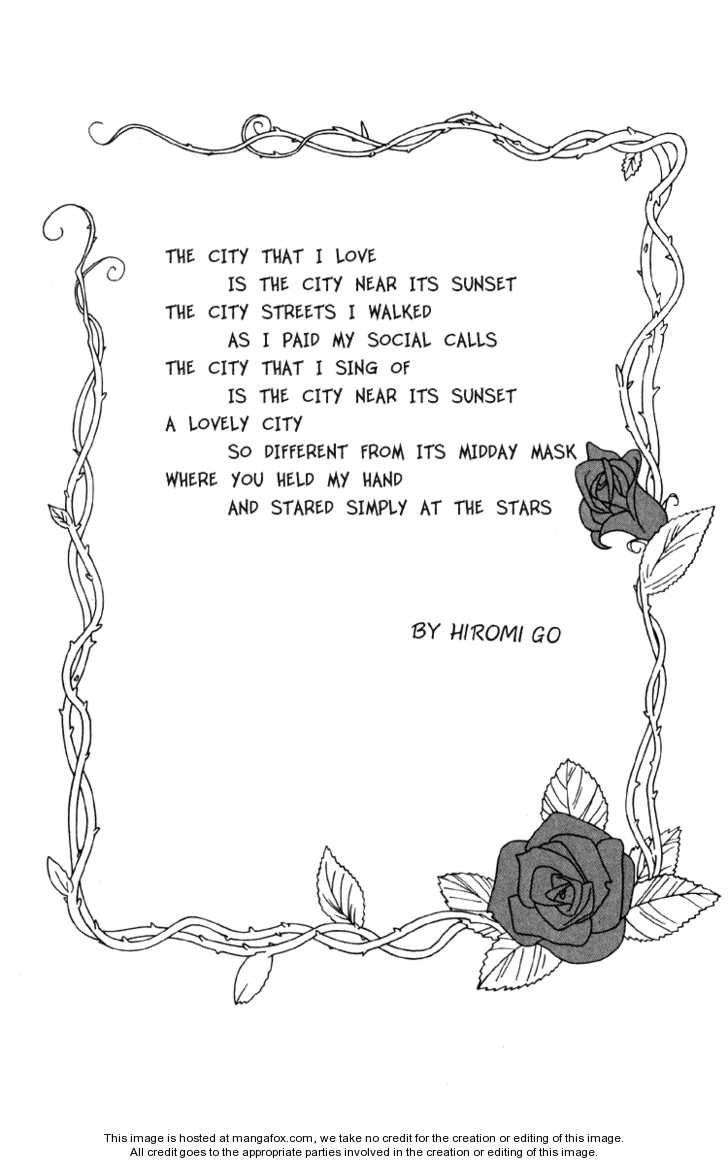 THE CITY THAT I LOVE
IS THE CITY NEAR ITS SUNSET
THE CITY STREETS I WALKED
AS I PAID MY SOCIAL CALLS
THE CITY THAT I SING OF
IS THE CITY NEAR ITS SUNSET
A LOVELY CITY
SO DIFFERENT FROM ITS MIDDAY MASK
WHERE YOU HELD MY HAND
AND STARED SIMPLY AT THE STARS
BY HIROMI GO
This image is hosted at mangafox.com, we take no credit for the creation or editing of this image.
All credit goes to the appropriate parties involved in the creation or editing of this image.